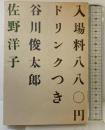 入場料八八〇円
ドリンクつき
谷川俊太郎
佐野洋子